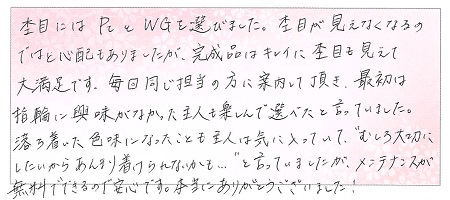 杢目にはPtとWGを選びました。杢目が見えなくなるの
ではと心配もありましたが、完成品はキレイに杢目も見えて
大満足です。毎回同じ担当の方に案内して頂き、最初は
指輪に興味がなかった主人も楽しんで選べたと言っていました。
落ち着いた色味になったことも主人は気に入っていて、"むしろ大切に
したいからあんまり着けられないかも…"と言っていましたが、メンテナンスが
無料でできるので安心です。本当にありがとうございました!